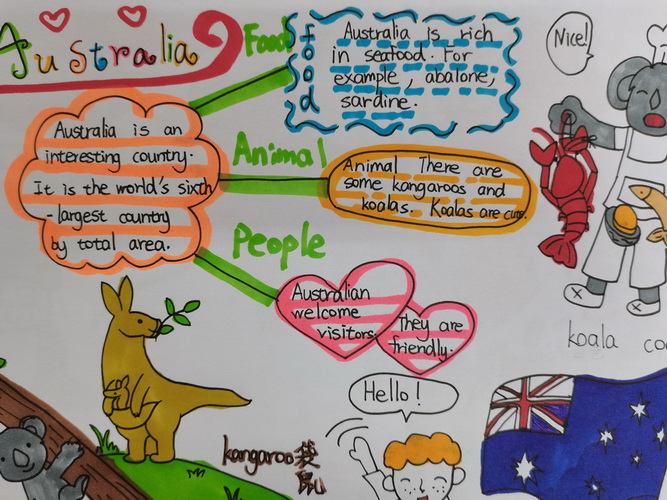 Australia
Food
food
Australia is rich
in seafood. For
example, abalone,
sardine.
Nice!
Australia is an
interesting country.
It is the world's sixth
-largest country
by total area.
Animal
Animal There are
some kangaroos and
koalas. Koalas are cute.
People
Australian
welcome
visitors.
They are
friendly.
Hello!
kangaroo
koala